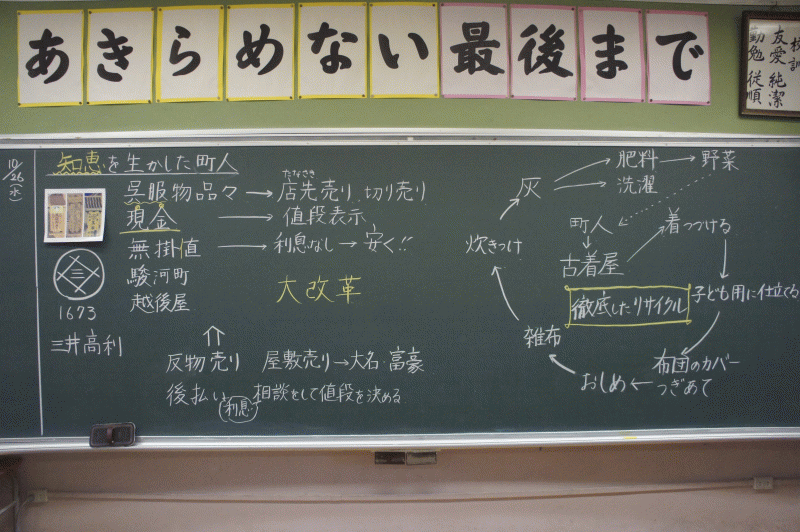 あきらめない最後まで
校訓
友愛 純潔
勤勉 従順
10/26(水)
知恵を生かした町人
呉服物品々→店先売り 切り売り
たなさき
現金→値段表示
無掛値→利息なし→安く!!
駿河町
越後屋
1673
三井高利
大改革
⇑
反物売り 屋敷売り→大名・富豪
後払い 相談をして値段を決める
利息
灰→肥料→野菜
→洗濯
町人
古着屋→着つづける
炊きつけ
徹底したリサイクル
子ども用に仕立てる
雑布
布団のカバー
つぎあて
おしめ